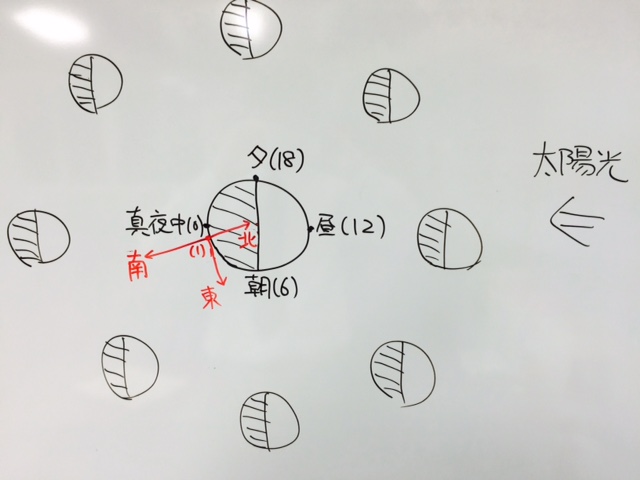 夕(18)
太陽光
真夜中(0)
北
昼(12)
(1)
南
東
朝(6)